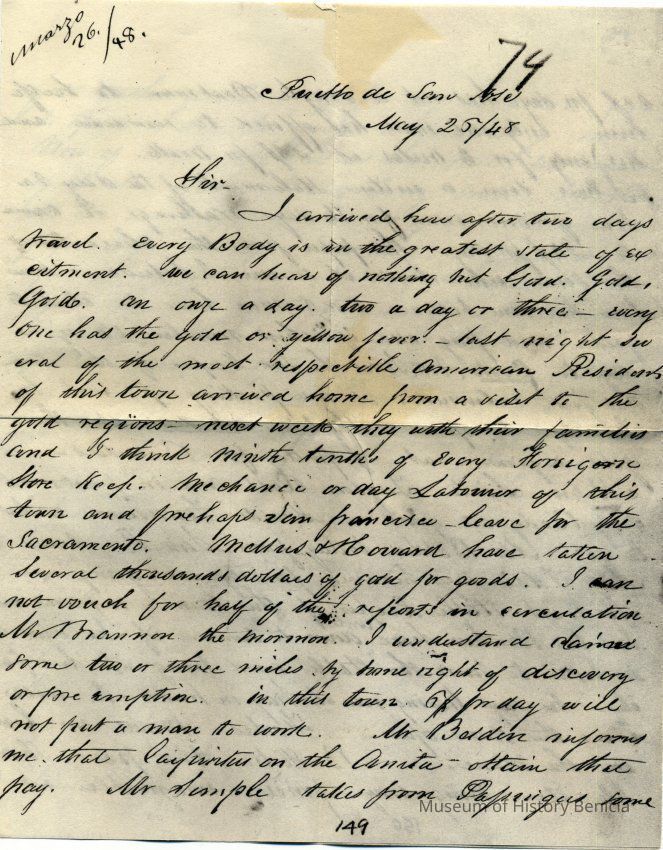 Marzo
26/48.
74
Pueblo de San Jose
May 25/48
Sir-
I arrived here after two days
travel. Every Body is in the greatest state of ex
citment. we can hear of nothing but Gold. Gold,
Gold. an onze a day. two a day or three - every
one has the gold or yellow fever. - last night sev
eral of the most respectible American Residents
of this town arrived home from a visit to the
gold regions - next week they with their families
and I think ninth tenths of every Foreigern
Store Keep. Mechanic or day Labourer of this
town and prehaps San francisco leave for the
Sacramento. Mellus & Howard have taken
several thousands dollars of gold for goods. I can
not vouch for half of the reports in circulation
Mr Brannon the mormon. I understand claims
some two or three miles by some right of discovery
or pre emption. in this town 5$ pr day will
not put a man to work. Mr Belden informs
me that on the Anita - obtain that
pay. Mr Semple takes from Passengers some
149
Museum of History Benicia